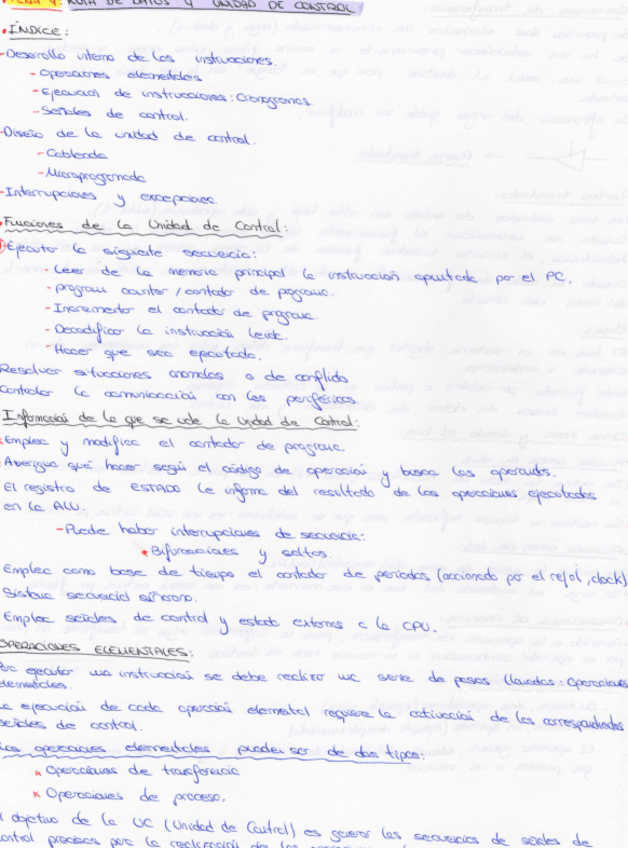 TEMA 4: RUTA DE DATOS Y UNIDAD DE CONTROL:
• ÍNDICE:
-Desarrollo interno de las instrucciones.
- Operaciones elementales
- Ejecución de instrucciones: Cronogramas.
- Señales de control.
-Diseño de la unidad de control.
- Cableada
- Microprogramada
-Interrupciones y excepciones.
Funciones de la Unidad de Control:
Ejecutar la siguiente secuencia:
- Leer de la memoria principal la instrucción apuntada por el PC.
- program counter / contador de programa.
- Incrementar el contador de programa.
- Decodificar la instrucción leída.
- Hacer que sea ejecutada.
Resolver situaciones anómalas o de conflicto
Controlar la comunicación con los periféricos.
Información de la que se vale la Unidad de Control:
Emplea y modifica el contador de programa.
Averigua qué hacer según el código de operación y busca los operandos.
El registro de ESTADO le informa del resultado de las operaciones ejecutadas
en la ALU.
- Puede haber interrupciones de secuencia:
* Bifurcaciones y saltos.
Emplea como base de tiempo el contador de periodos (accionado por el reloj, clock)
Sistema secuencial síncrono.
Emplea señales de control y estado externas a la CPU.
OPERACIONES ELEMENTALES:
Para ejecutar una instrucción se debe realizar una serie de pasos llamados: Operaciones
elementales.
La ejecución de cada operación elemental requiere la activación de las correspondientes
señales de control.
Las operaciones elementales pueden ser de dos tipos:
* Operaciones de transferencia
* Operaciones de proceso.
El objetivo de la UC (Unidad de Control) es generar las secuencias de señales de
control precisas para la realización de las